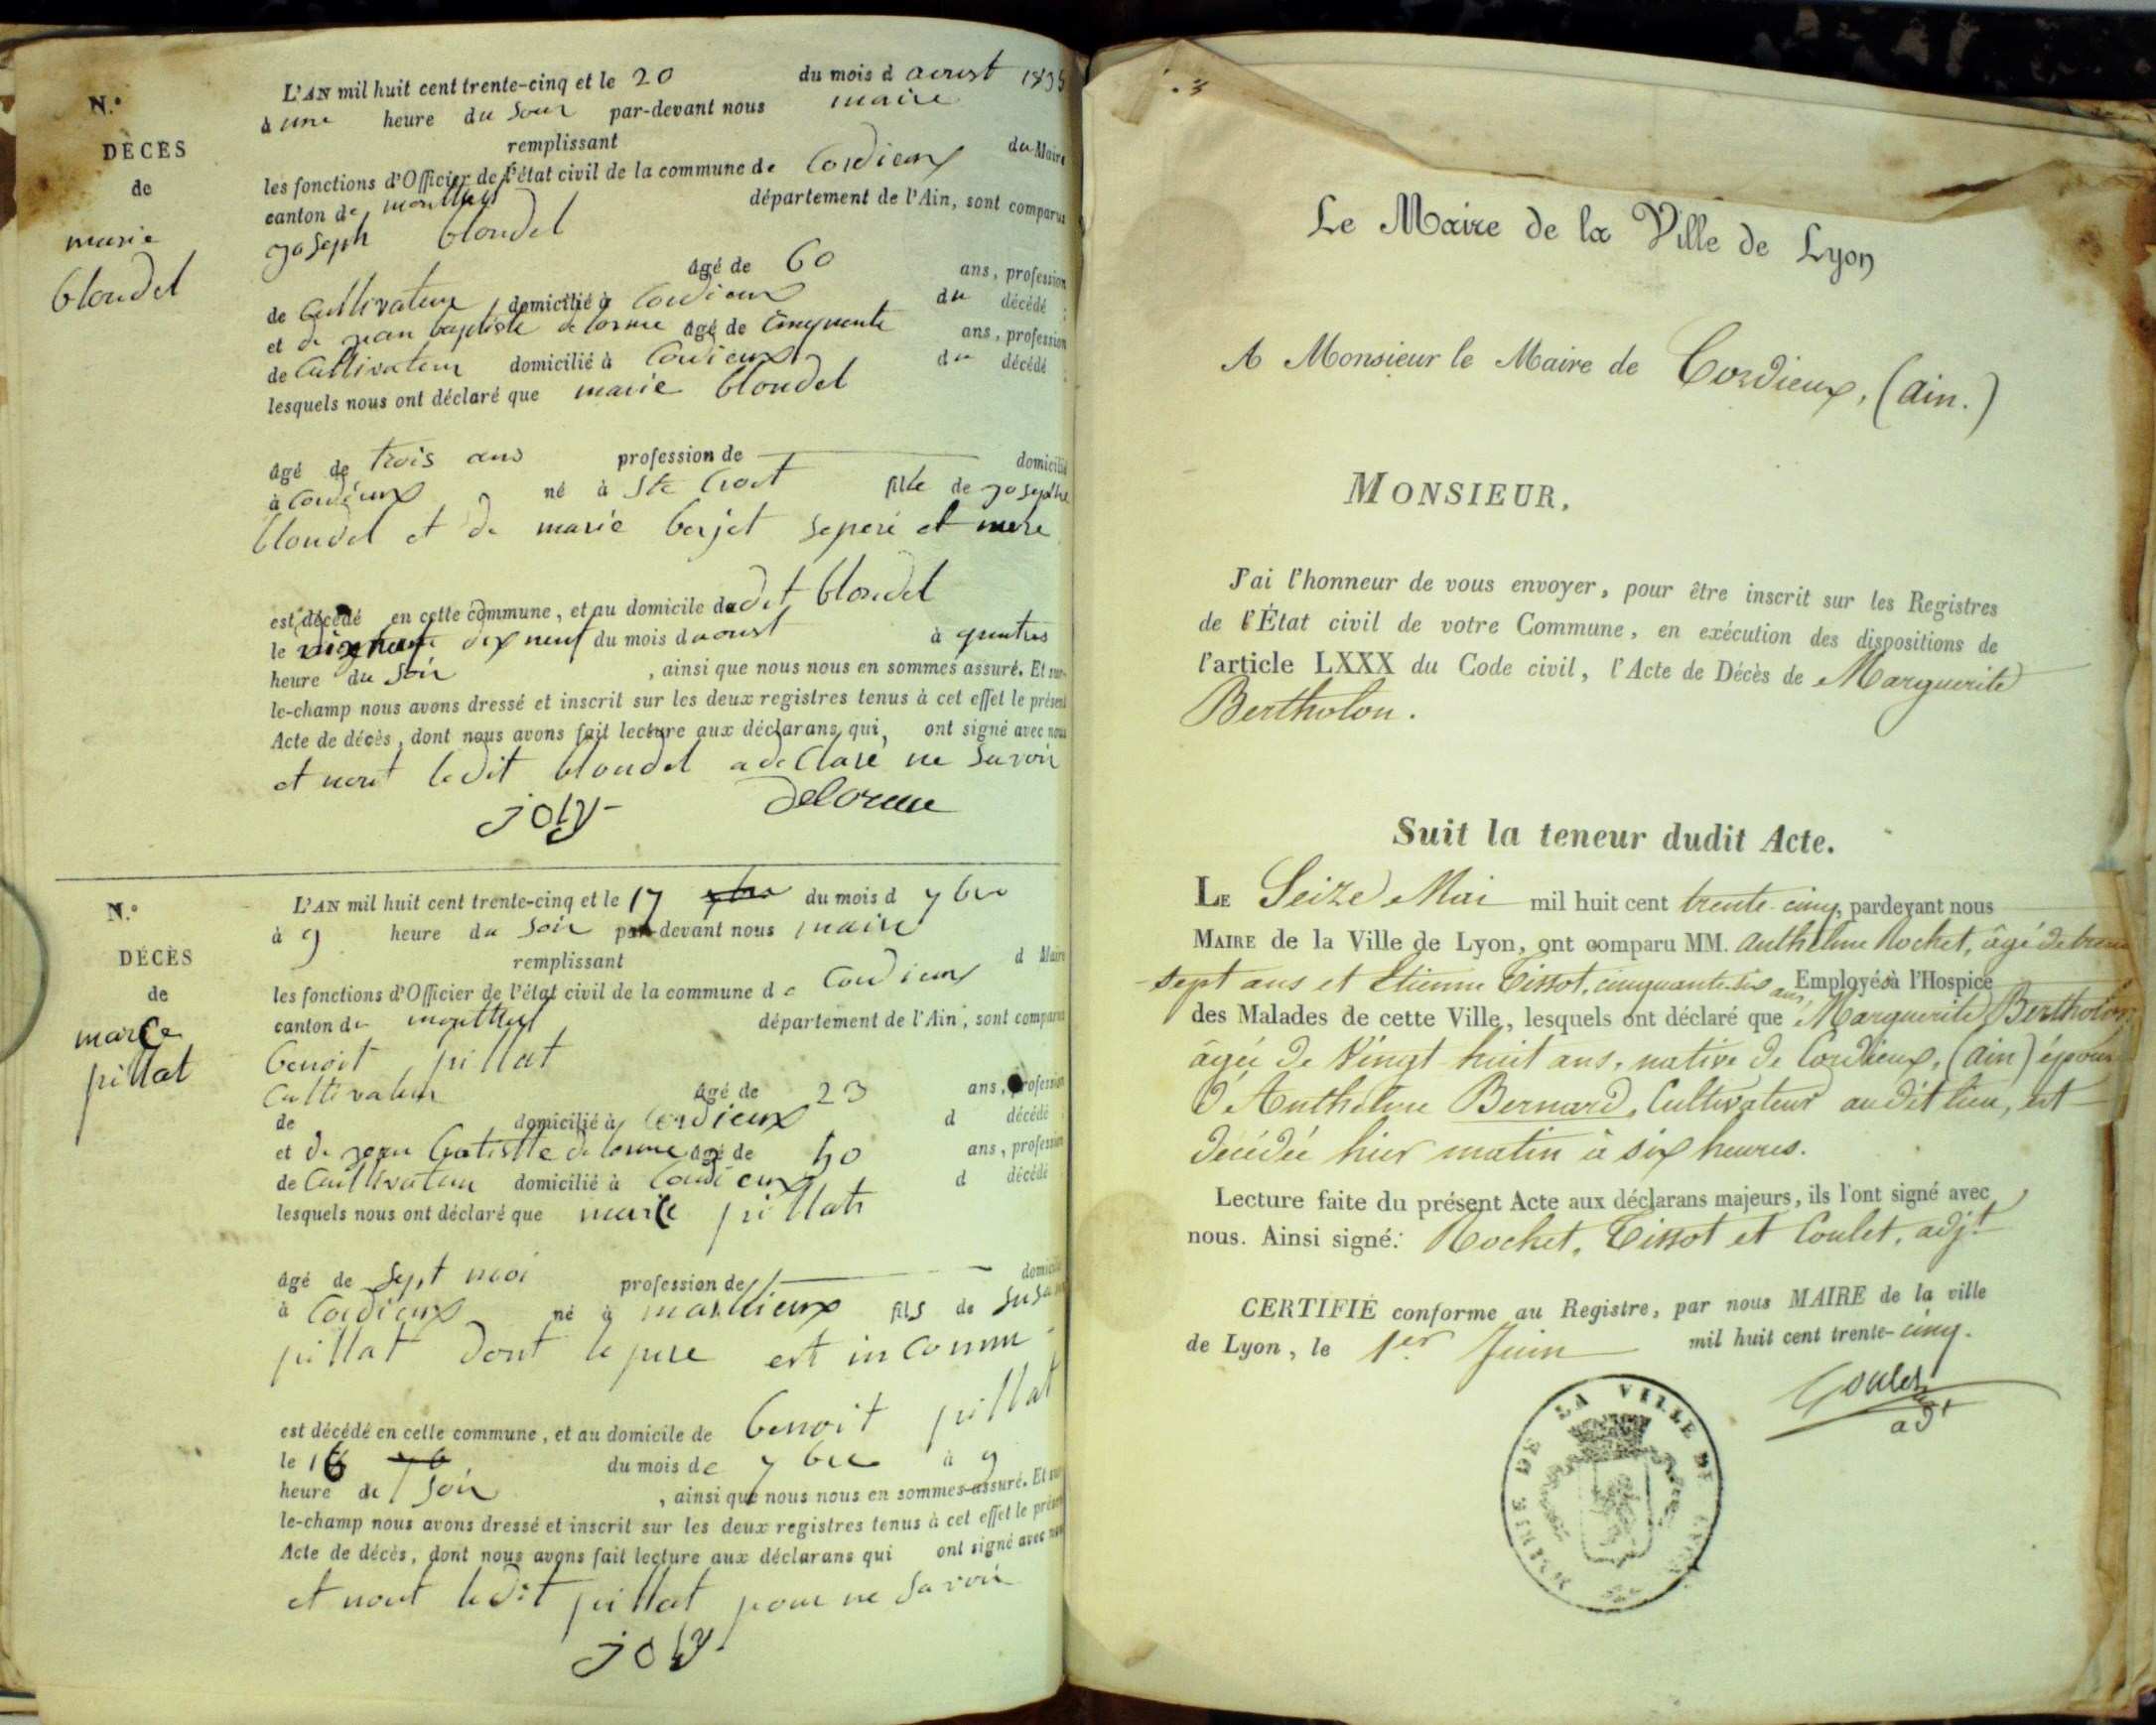 N.º
DÉCÈS
de
marie
blondel
L'AN mil huit cent trente-cinq et le 20 du mois d aoust 1835
à une heure du Soir par-devant nous maire
remplissant du Maire
les fonctions d'Officier de l'état civil de la commune de Cordieux
canton de montluel département de l'Ain, sont comparus
joseph blondel
âgé de 60 ans, profession
de Cultivateur domicilié à Cordieux du décédé ;
et de jean baptiste delorme âgé de Cinquente ans, profession
de Cultivateur domicilié à Cordieux du décédé ;
lesquels nous ont déclaré que marie blondel
âgé de trois ans profession de domicilié
à Cordieux né à Ste Croit fille de josephe
blondel et de marie berjet sepere et mere
est décédé en cette commune, et au domicile dudit blondel
le dix neuf du mois daoust à quatres
heure du Soir , ainsi que nous nous en sommes assuré. Et sur-
le-champ nous avons dressé et inscrit sur les deux registres tenus à cet effet le présent
Acte de décès, dont nous avons fait lecture aux déclarans qui, ont signé avec nous
et nont ledit blondel a declaré ne Savoir
joly Delorme
N.º
DÉCÈS
de
marie
pillat
L'AN mil huit cent trente-cinq et le 17 du mois d 7bre
à 9 heure du Soir par-devant nous maire
remplissant d Maire
les fonctions d'Officier de l'état civil de la commune de Cordieux
canton de montluel département de l'Ain, sont comparus
benoit pillat
Cultivateur âgé de 23 ans, profession
de domicilié à Cordieux d décédé ;
et de jean batistte delorme âgé de 50 ans, profession
de Cultivateur domicilié à Cordieux d décédé
lesquels nous ont déclaré que marie pillat
âgé de Sept moi profession de domicilié
à Cordieux né à fils de Susan
pillat Dont le pere est inConnu
est décédé en celle commune, et au domicile de benoit pillat
le 16 du mois de 7bre à 9
heure de Soir , ainsi que nous nous en sommes assuré. Et sur
le-champ nous avons dressé et inscrit sur les deux registres tenus à cet effet le présent
Acte de décès, dont nous avons fait lecture aux déclarans qui ont signé avec nous
et nont ledit pillat pour ne Savoir
joly
Le Maire de la Ville de Lyon
A Monsieur le Maire de Cordieux, (Ain.)
MONSIEUR,
J'ai l'honneur de vous envoyer, pour être inscrit sur les Registres
de l'État civil de votre Commune, en exécution des dispositions de
l'article LXXX du Code civil, l'Acte de Décès de Marguerite
Bertholon.
Suit la teneur dudit Acte.
LE Seize Mai mil huit cent trente-cinq, pardevant nous
MAIRE de la Ville de Lyon, ont comparu MM. Anthelme Rochet, âgé de trente
-sept ans et Etienne Tissot, cinquante-six ans, Employés à l'Hospice
des Malades de cette Ville, lesquels ont déclaré que Marguerite Bertholon,
âgée de Vingt-huit ans, native de Cordieux, (Ain) épouse
d'Anthelme Bernard, Cultivateur audit lieu, est
décédée hier matin à six heures.
Lecture faite du présent Acte aux déclarans majeurs, ils l'ont signé avec
nous. Ainsi signé: Rochet, Tissot et Coulet, adj.t
CERTIFIÉ conforme au Registre, par nous MAIRE de la ville
de Lyon, le 1er Juin mil huit cent trente-cinq.
Coulet
adt
MAIRIE DE LA VILLE DE LYON